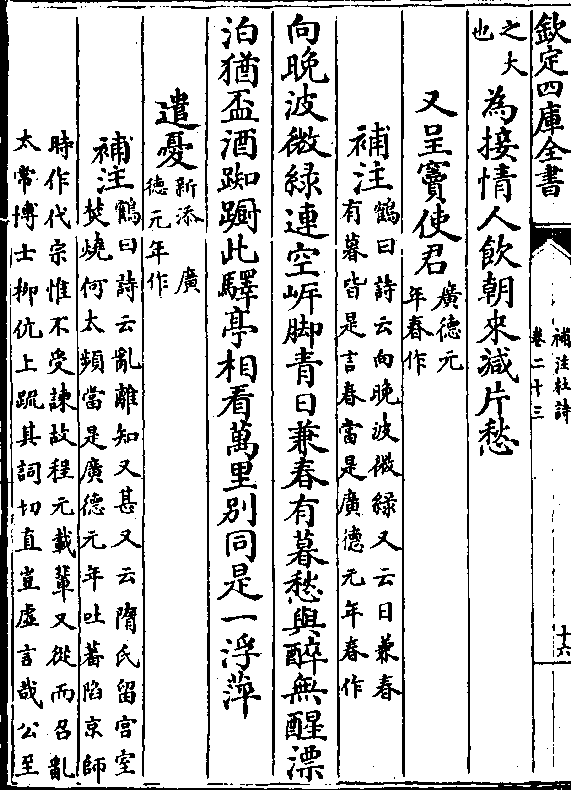 欽定四庫全書
補注杜詩
卷二十三
十六
之大
也
為接情人飲朝來減片愁
又呈竇使君
廣德元
年春作
補注
鶴曰詩云向晚波微綠又云日兼春
有暮皆是言春當是廣德元年春作
向晚波微綠連空岸脚青日兼春有暮愁與醉無醒漂
泊猶盃酒踟蹰此驛亭相看萬里別同是一浮萍
遣憂
新添廣
德元年作
補注
鶴曰詩云亂離知又甚又云隋氏留宫室
焚燒何太頻當是廣德元年吐蕃陷京師
時作代宗惟不受諫故程元載輩又從而召亂
太常博士柳伉上疏其詞切直豈虚言哉公至